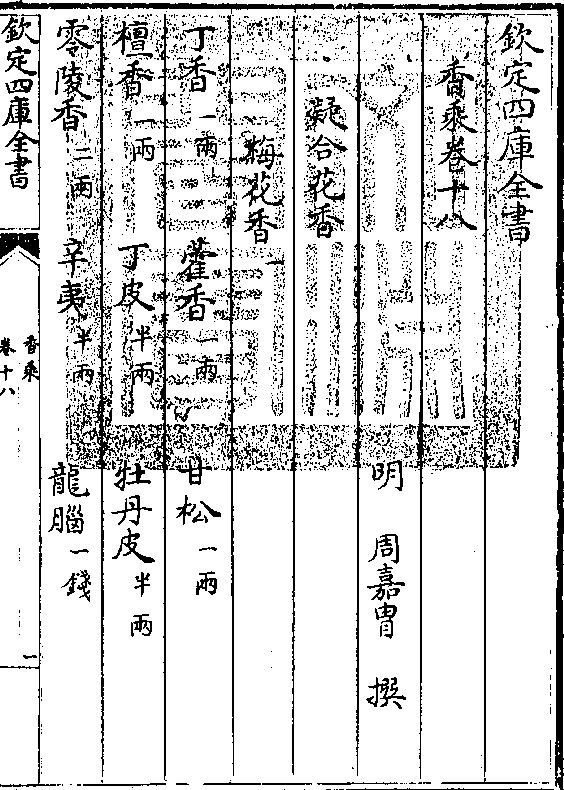 欽定四庫全書
香乘卷十八
明 周嘉胄 撰
凝合花香
梅花香一
丁香一兩 藿香一兩 甘松一兩
檀香一兩 丁皮半兩 牡丹皮半兩
零陵香二兩 辛夷半兩 龍腦一錢
欽定四庫全書
香乘
卷十八
一